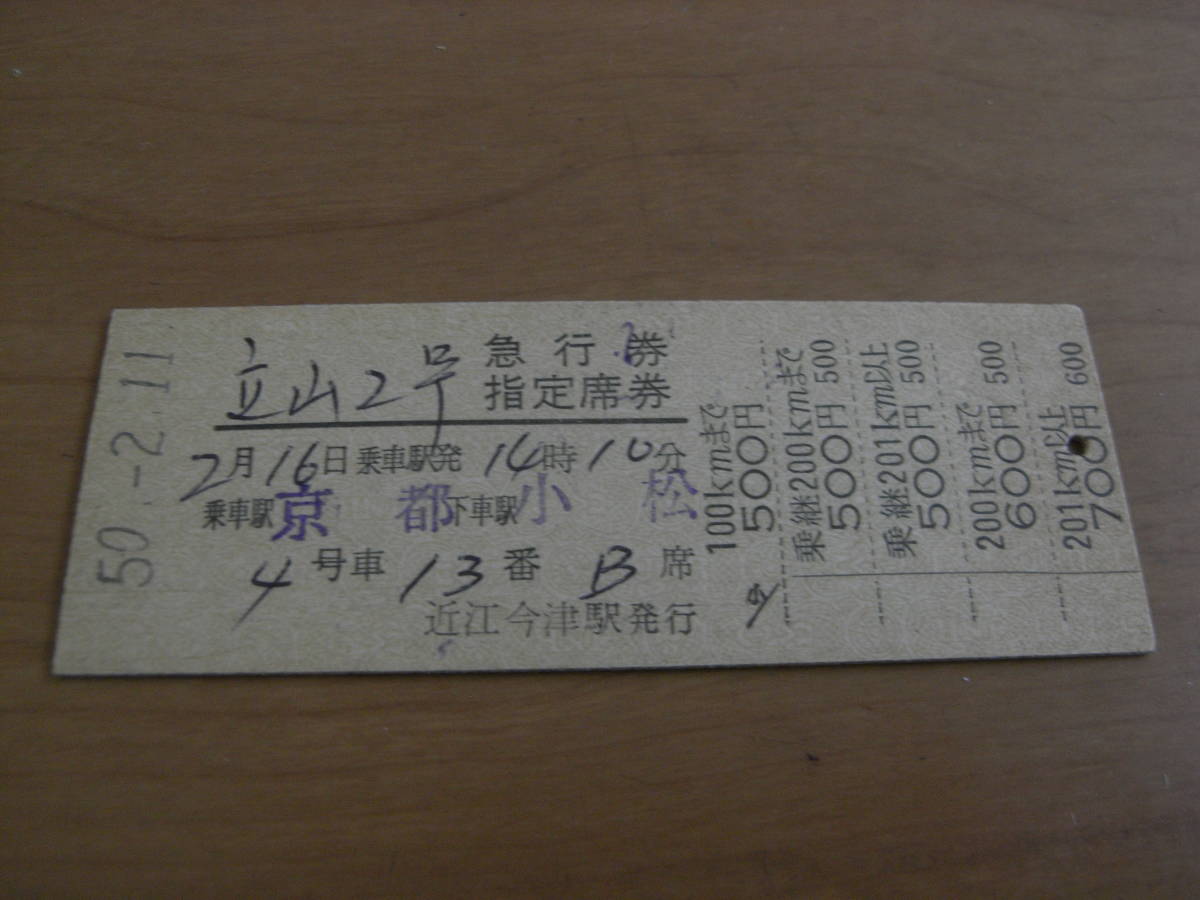 50.-2.11
立山2号 急行券
指定席券
2月16日 乗車駅発 14時10分
乗車駅 京都 下車駅 小松
4号車 13番 B席
近江今津駅発行
100kmまで
500円
乗継200kmまで
500円 500
乗継201km以上
500円 500
200kmまで
600円 500
201km以上
700円 600